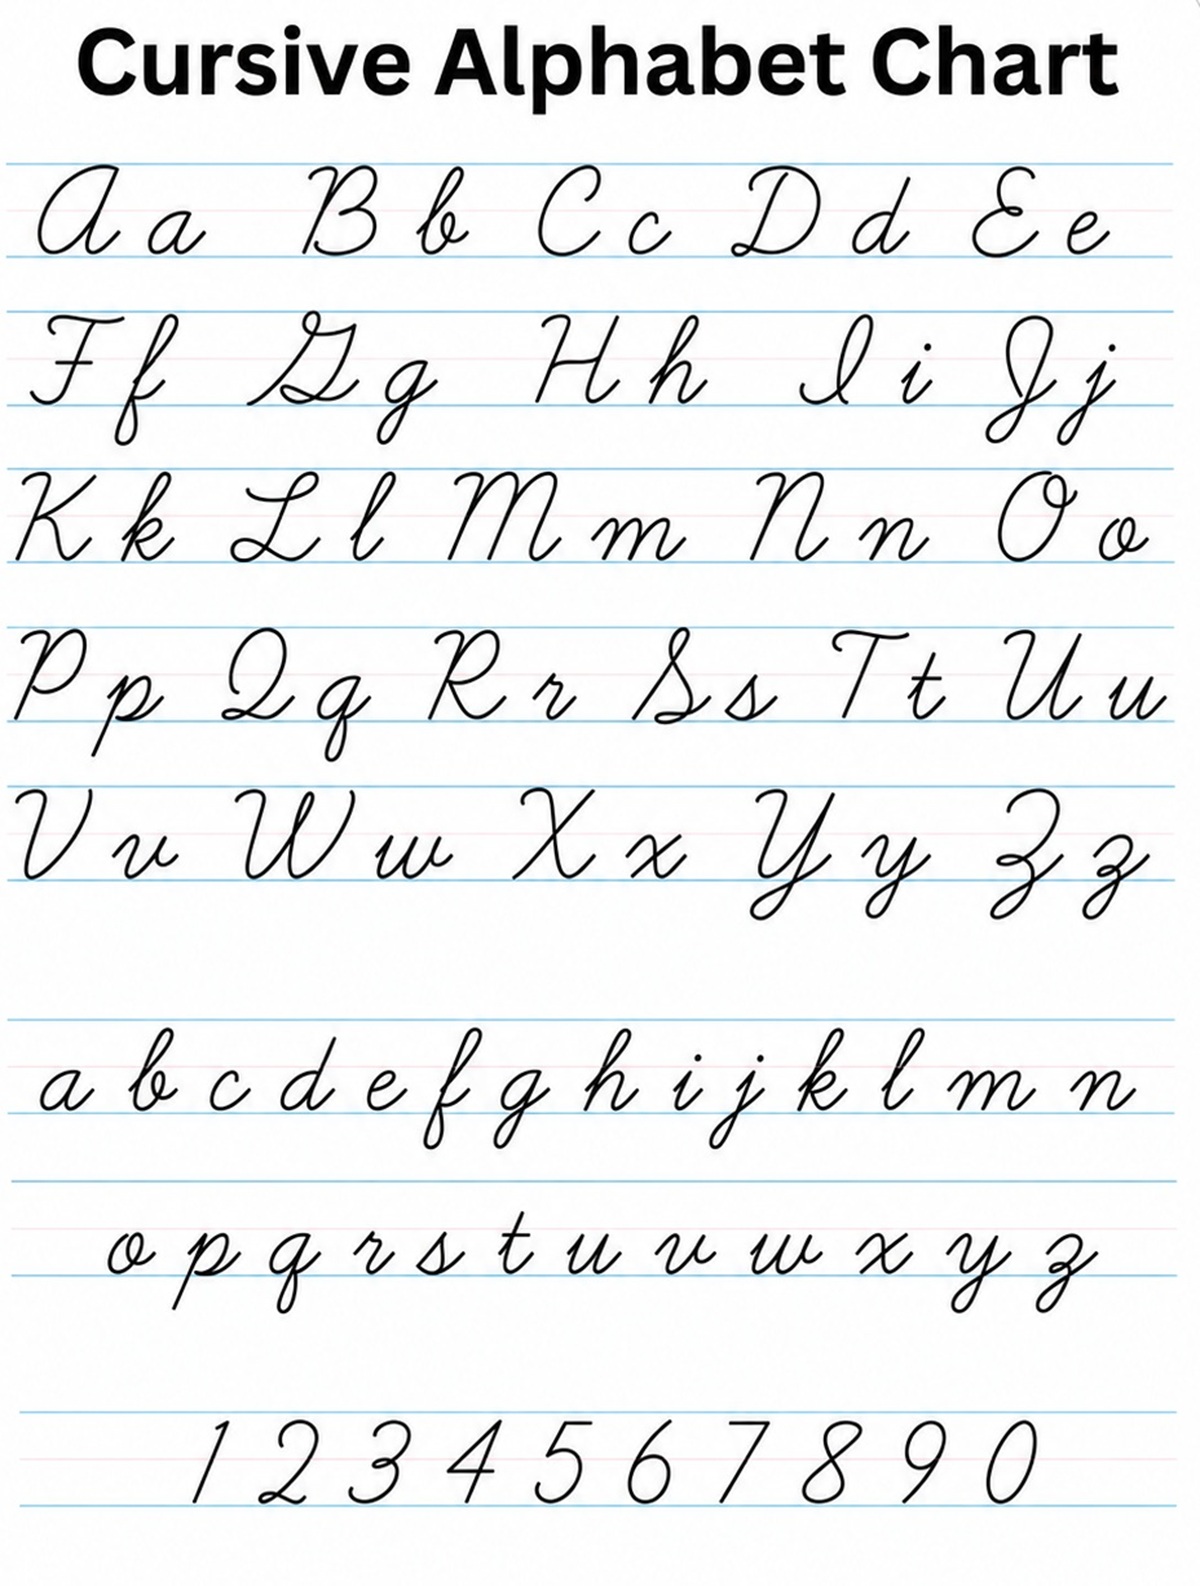 Cursive Alphabet Chart
A a B b C c D d E e
F f G g H h I i J j
K k L l M m N n O o
P p Q q R r S s T t U u
V v W w X x Y y Z z
a b c d e f g h i j k l m n
o p q r s t u v w x y z
1 2 3 4 5 6 7 8 9 0